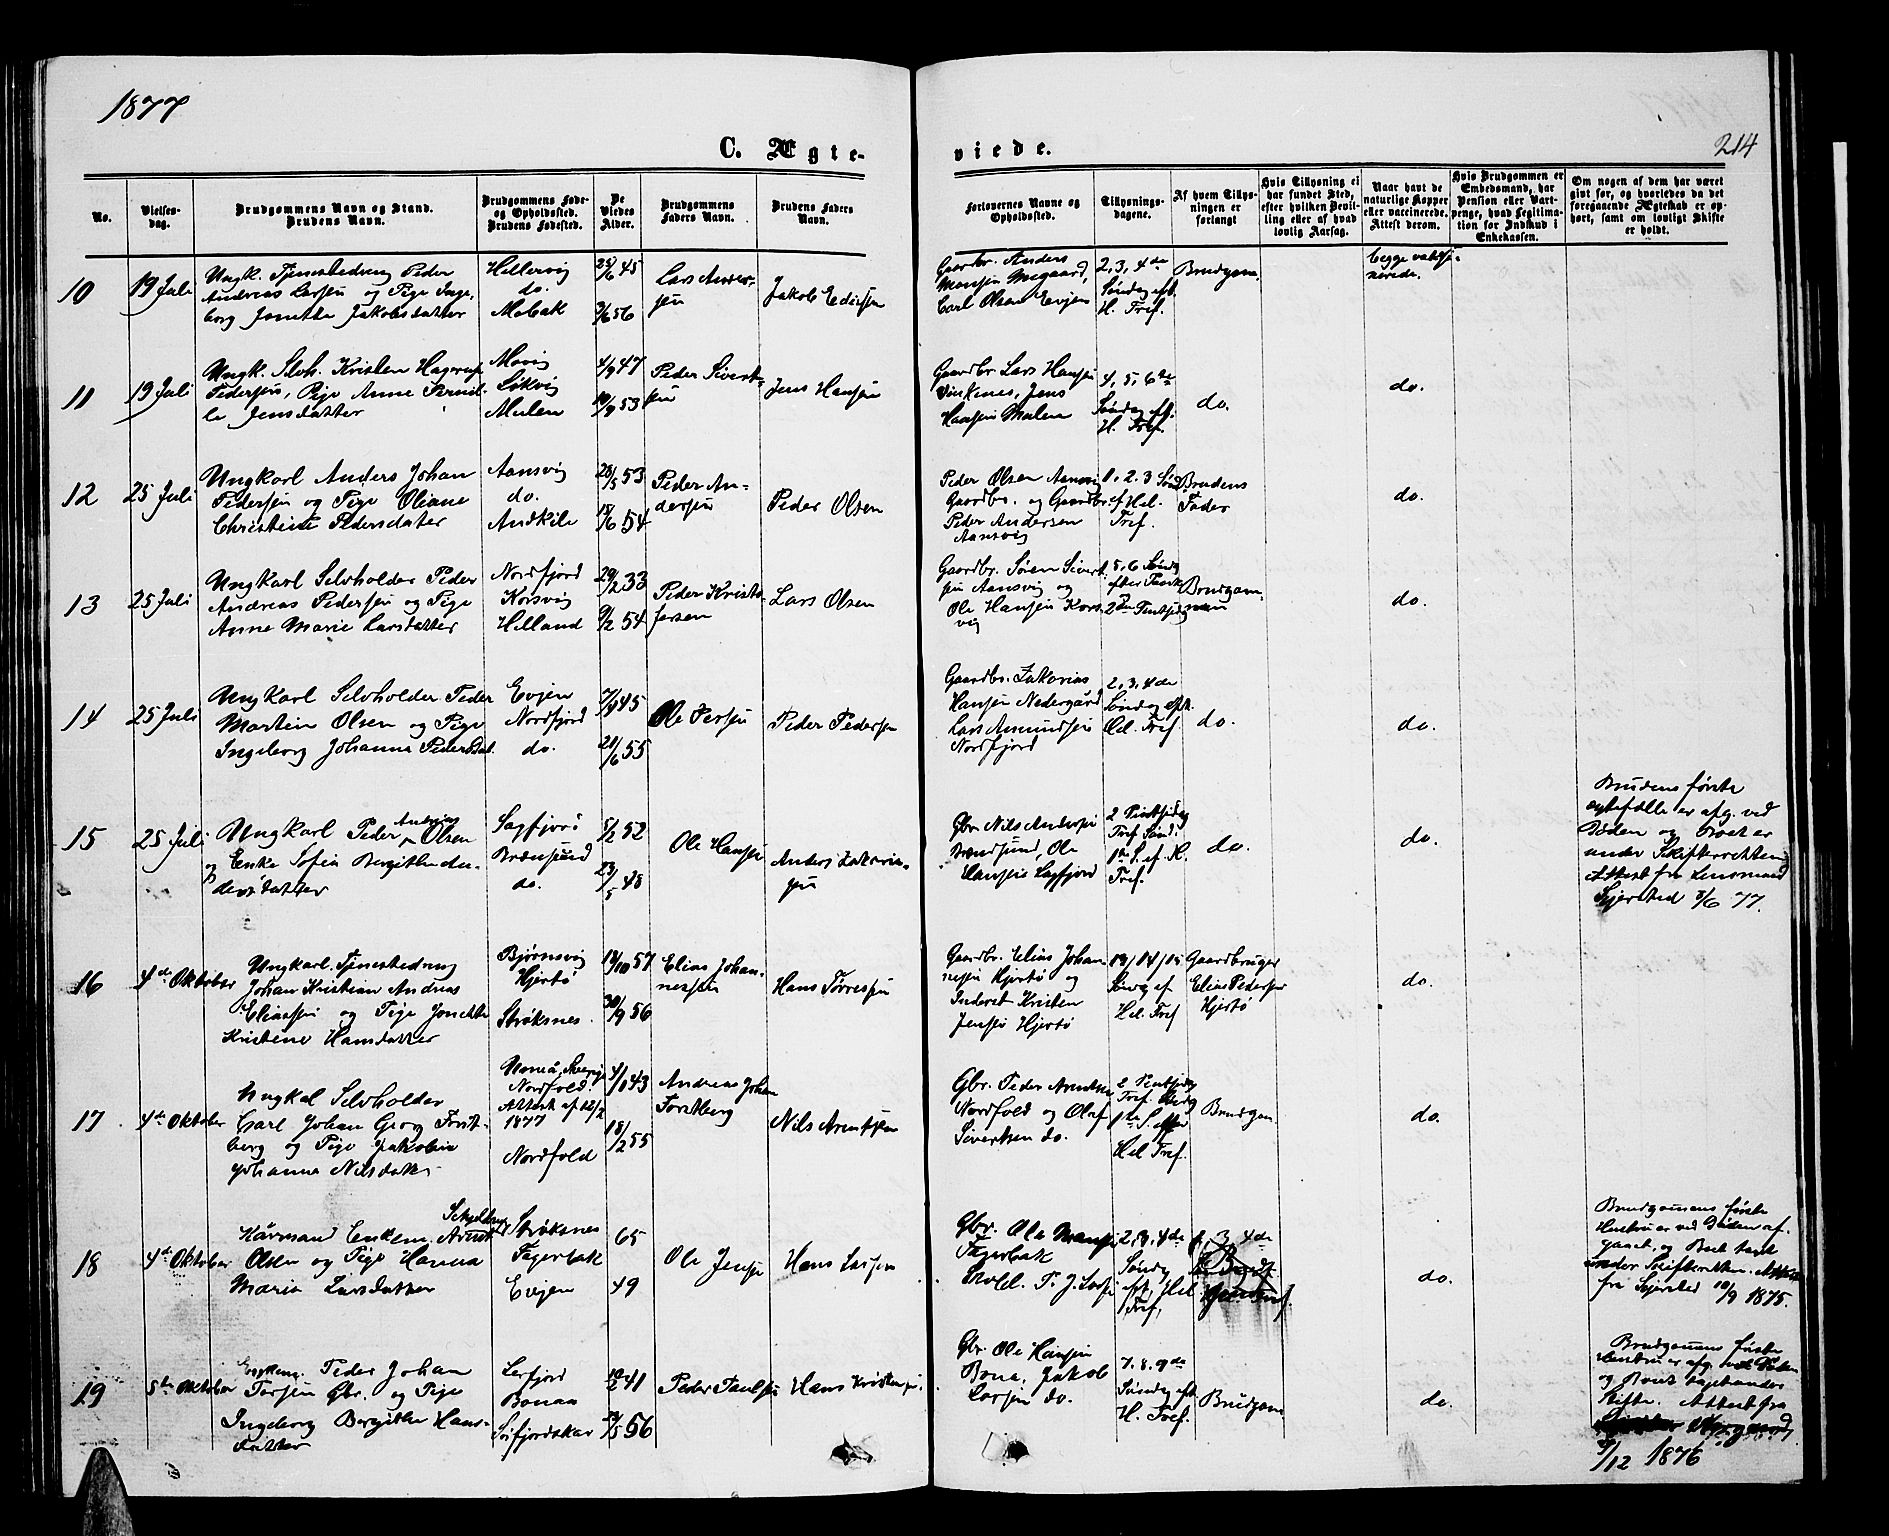 1877
C. Ægte-
viede.
214
No.
Vielses-
dag.
Brudgommens Navn og Stand.
Brudens Navn.
Brudgommens Føde-
og Opholdssted.
Brudens Fødested.
De
Viedes
Alder.
Brudgommens
Faders Navn.
Brudens Faders
Navn.
Forlovernes Navne og
Opholdssted.
Tillysnings-
dagene.
Af hvem Tillys-
ningen er
forlangt
Hvis Tillysning ei
har fundet Sted,
efter hvilken Bevil-
ling eller af hvad
lovlig Aarsag.
Naar havt de
naturlige Kopper
eller vaccinerede.
Attest derom.
Hvis Brudgommen er
Embedsmand, har
Pension eller Vart-
penge, hvad Legitima-
tion for Indskud i
Enkekassen.
Om nogen af dem har været
gift før, og hvorledes da det
foregaaende Ægteskab er op-
hørt, samt om lovligt Skifte
er holdt.
10
19 Juli
Ungk. Tjenestedreng Peder
Andreas Larsen og Pige Inge-
borg Jonette Jakobsdatter
Hellervig
do.
25/6 45
3/6 56
Lars Ander-
sen
Gaardbr. Anders
Carl Olsen Evjen
2, 3, 4de
Søndag eft.
H. Tref.
Brudgom.
begge
11
19 Juli
Ungk. Selvh. Kristen Hagerup
Pedersen, Pige Anne Pernil-
le Jensdatter
Løkvig
Mulen
4/9 47
10/9 53
Peder Sivert-
sen
Jens Hansen
Gaardbr Lars Hansen
Vinkenes, Jens
Hansen Mulen
4, 5, 6te
Søndag eft.
H. Tref.
do.
do.
12
25 Juli
Ungkarl Anders Johan
Pedersen og Pige Oliane
Christine Pedersdatter
Aansvig
do.
Andkile
28/5 53
18/6 54
Peder An-
dersen
Peder Olsen
Peder Olsen Aansvig
Gaardbr. og Gaardbr.
Peder Andersen
Aansvig
1, 2, 3 Sønd.
ef Hel.
Tref.
Brudens
Fader
do.
13
25 Juli
Ungkarl Selvholder Peder
Andreas Pedersen og Pige
Anne Marie Larsdatter
Nordfjord
Korsvig
Helland
29/2 33
9/2 54
Peder Kristo-
fersen
Lars Olsen
Gaardbr. Søren Sivert-
sen Aansvig og
Ole Hansen Kors-
vig
5, 6 Sønd.
efter Paask
Brudgom-
men
do.
14
25 Juli
Ungkarl Selvholder Peder
Martin Olsen og Pige
Ingeborg Johanna Pedersdat.
Evjen
Nordfjord
do.
7/9 45
21/6 55
Peder Pedersen
Gaardbr. Zakarias
Hansen Nedergård
Lars Amundsen
Nordfjord
2, 3, 4de
Søndag eft.
Hel. Tref.
do.
do.
15
25 Juli
Ungkarl Peder Andreas Olsen
og Enke Sofia Bergithe An-
dersdatter
Sagfjord
Brænsund
do.
5/2 52
23/5 48
Ole Hansen
Anders Zakaria-
sen
Gbr. Nils Andersen
Brændsund, Ole
Hansen Sagfjord
Tref.
do.
do.
Brudens første
egtefælle er afg. ved
Døden og Boet er
under Skifteretten
Attest fra Lensmand
Sejersted 8/6 77.
16
4de Oktober
Ungkarl. Tjenestedreng
Johan Kristian Andreas
Eliassen og Pige Jonette
Kristine Hansdatter
Bjørnsvig
Hjertø
Strøksnes
19/10 57
30/9 56
Elias Johan-
nessen
Hans Torresen
Gaardbr. Elias Johan-
nesen Hjertø og
Inderst Kristen
Jensen Hjertø
13/ 14/ 15
Søndg ef
Hel. Tref
Gaardbruger
Elias Pedersen
Hjertø
do.
17
4de Oktober
Ungkal Selvholder
Carl Johan Georg Forst-
berg og Pige Jakobine
Johanna Nilsdatter
Umeå, Sverige
Nordfold.
Attest af 12/2
1877
Nordfold
4/1 43
18/2 55
Andreas Johan
Forstberg
Nils Arentsen
Gbr. Peder Arentsen
Nordfold og Olaf
Sivertsen do.
1te S. efter
Hel Tref.
Brudgom
do.
18
4de Oktober
Kårmand Enkem. Arndt
Olsen og Pige Hanna
Maria Larsdatter
Strøksnes
Fagerbak
Evjen
65
49
Ole Jensen
Hans Larsen
Gbr. Ole Hansen
Fagerbak
2, 3, 4de
Søndg
eft. Hel
Tref,
do.
Brudgommens første
Hustru er ved Døden af-
gaaet, og Boet tart
under Skifteretten. Attest
fra Sejersted 10/9 1875.
19
5te Oktober
Enkem. Peder Johan
og Pige
Ingeborg Bergithe Hans-
datter
Lerfjord
Bonaa
Sørfjordskar
12/2 41
56
Peder Paulsen
Hans Kristensen
Gbr Ole Hansen
Bona, Jakob
Larsen do.
7. 8. 9de
Søndag eft
H. Tref.
Brudgom
do.
Brudgommens første
Hustru er afg. ved Døden
og Boet
Skifte. Attest fra
9/12 1876